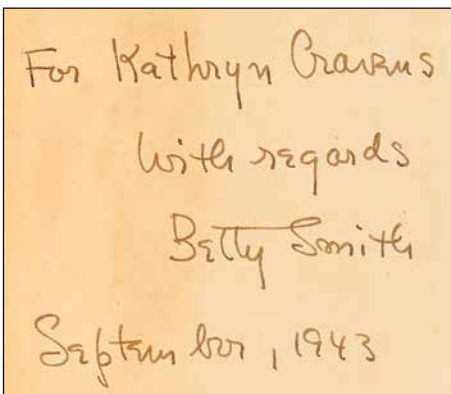 For Kathryn Cravens
With regards
Betty Smith
September, 1943